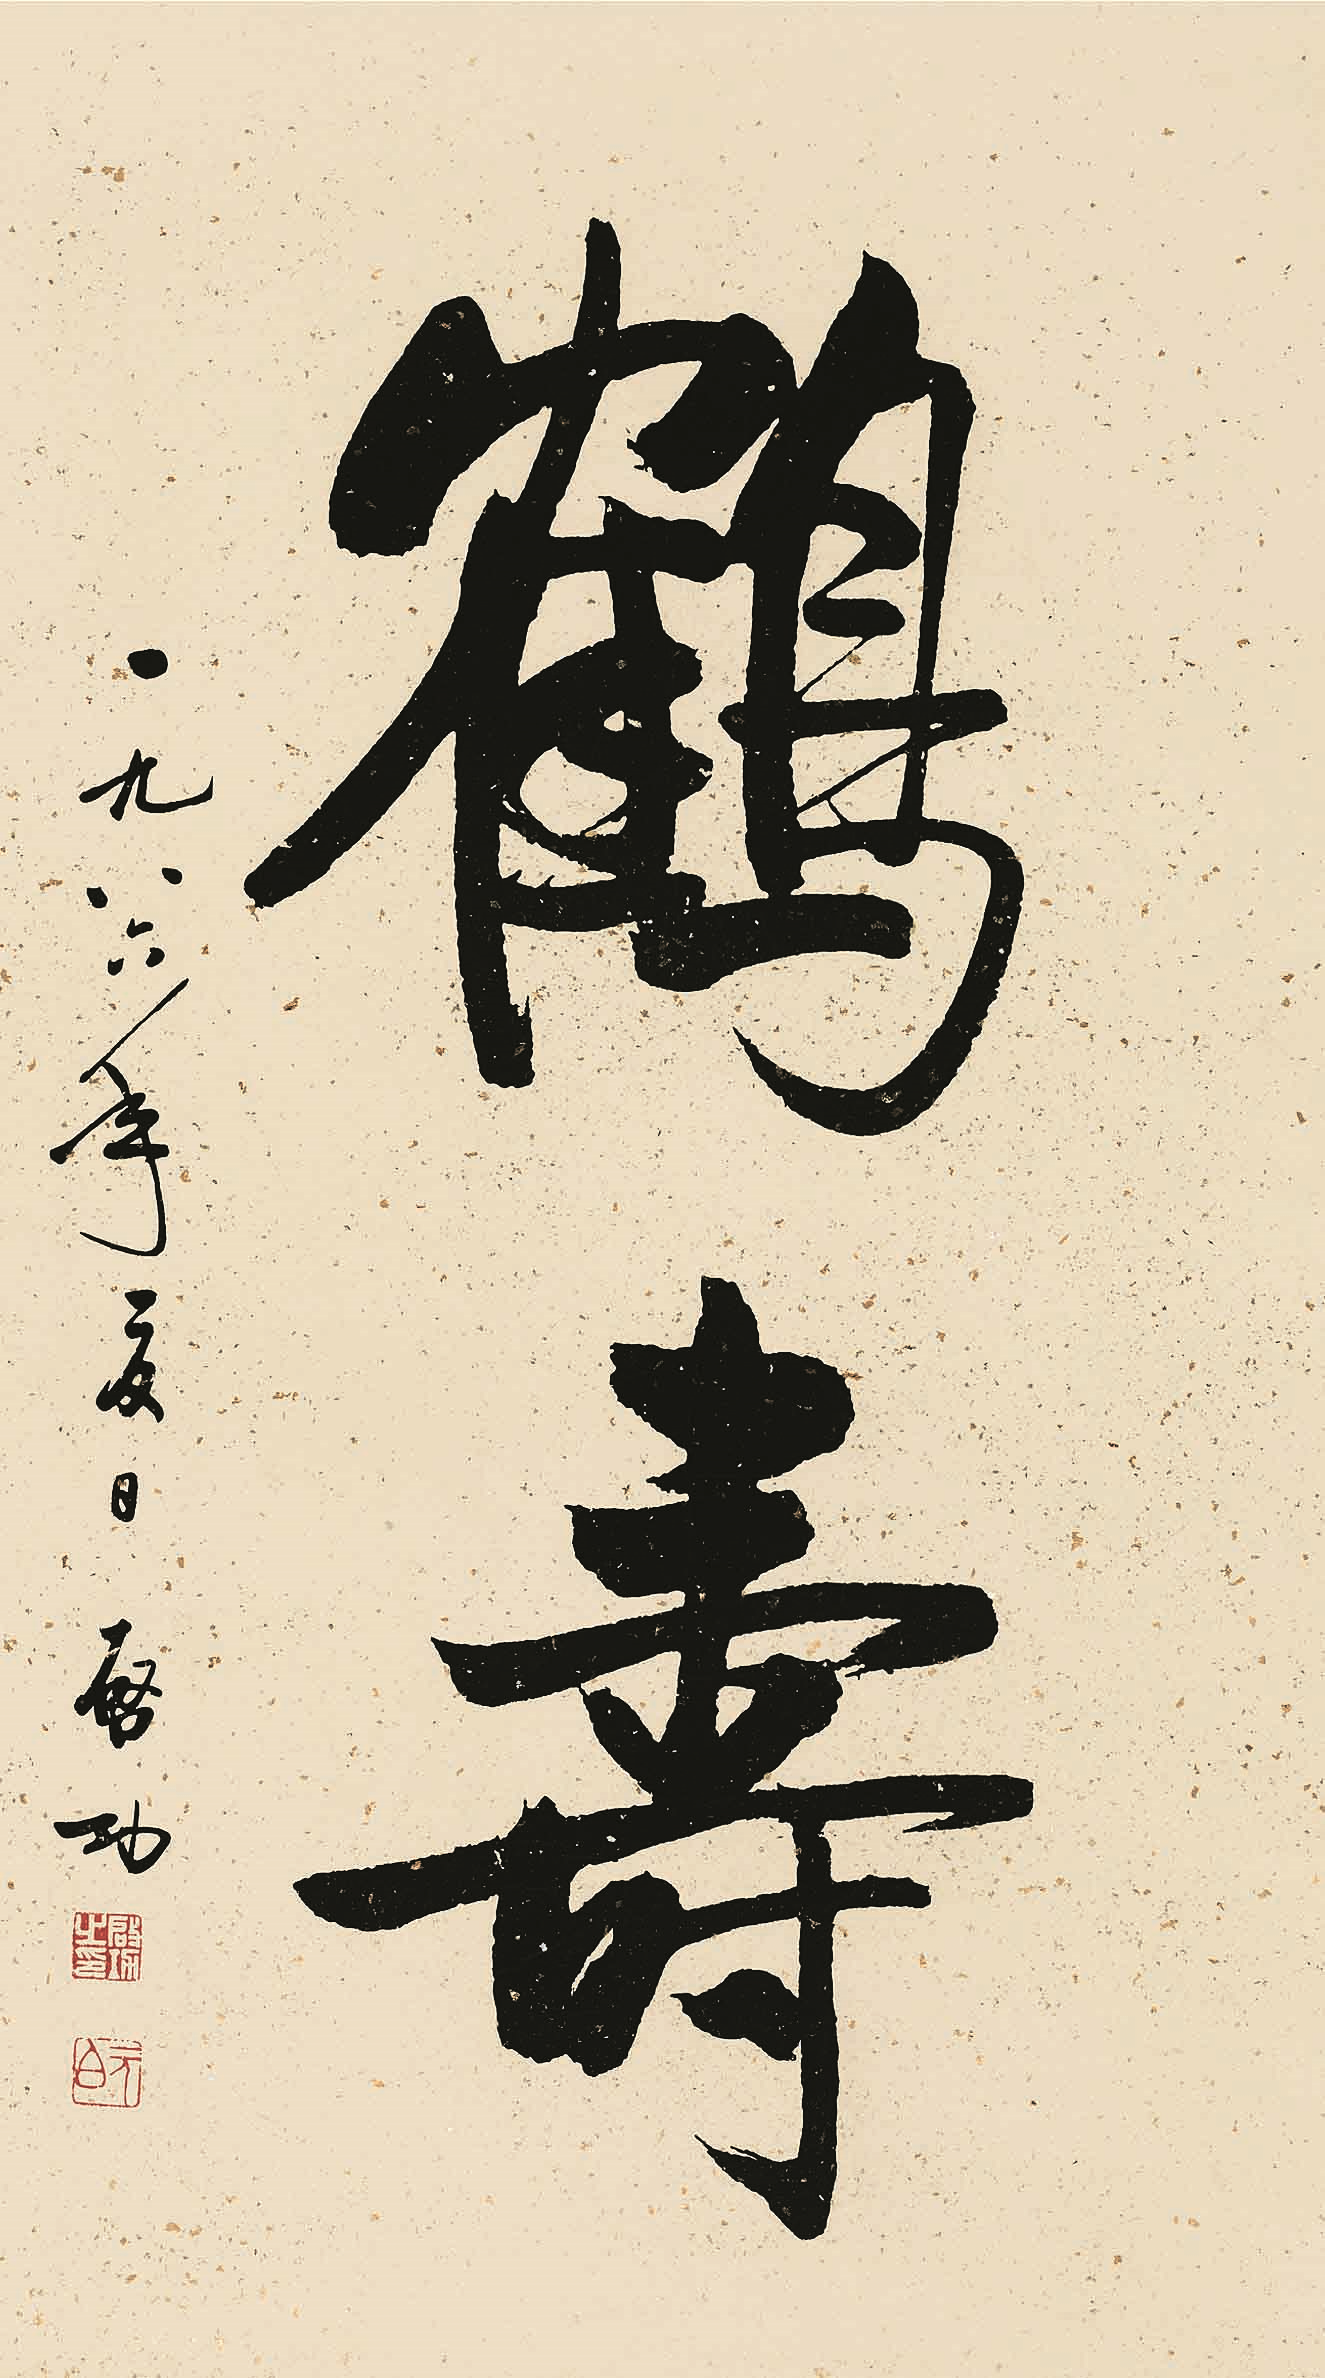 鶴壽
一九八六年夏日 啓功
啓功之印
元白